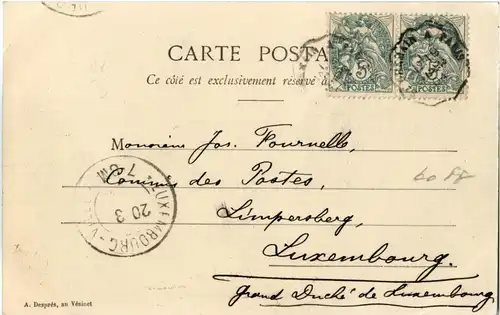 CARTE POSTA
Ce côté est exclusivement réservé à
5
POSTES
POSTES
A PARIS
Monsieur Jos. Fournelle,
Commis des Postes,
Limpersberg,
Luxembourg.
Grand Duché de Luxembourg
LUXEMBOURG-V
20 3
7-8
60 PF
A. Després, au Vésinet